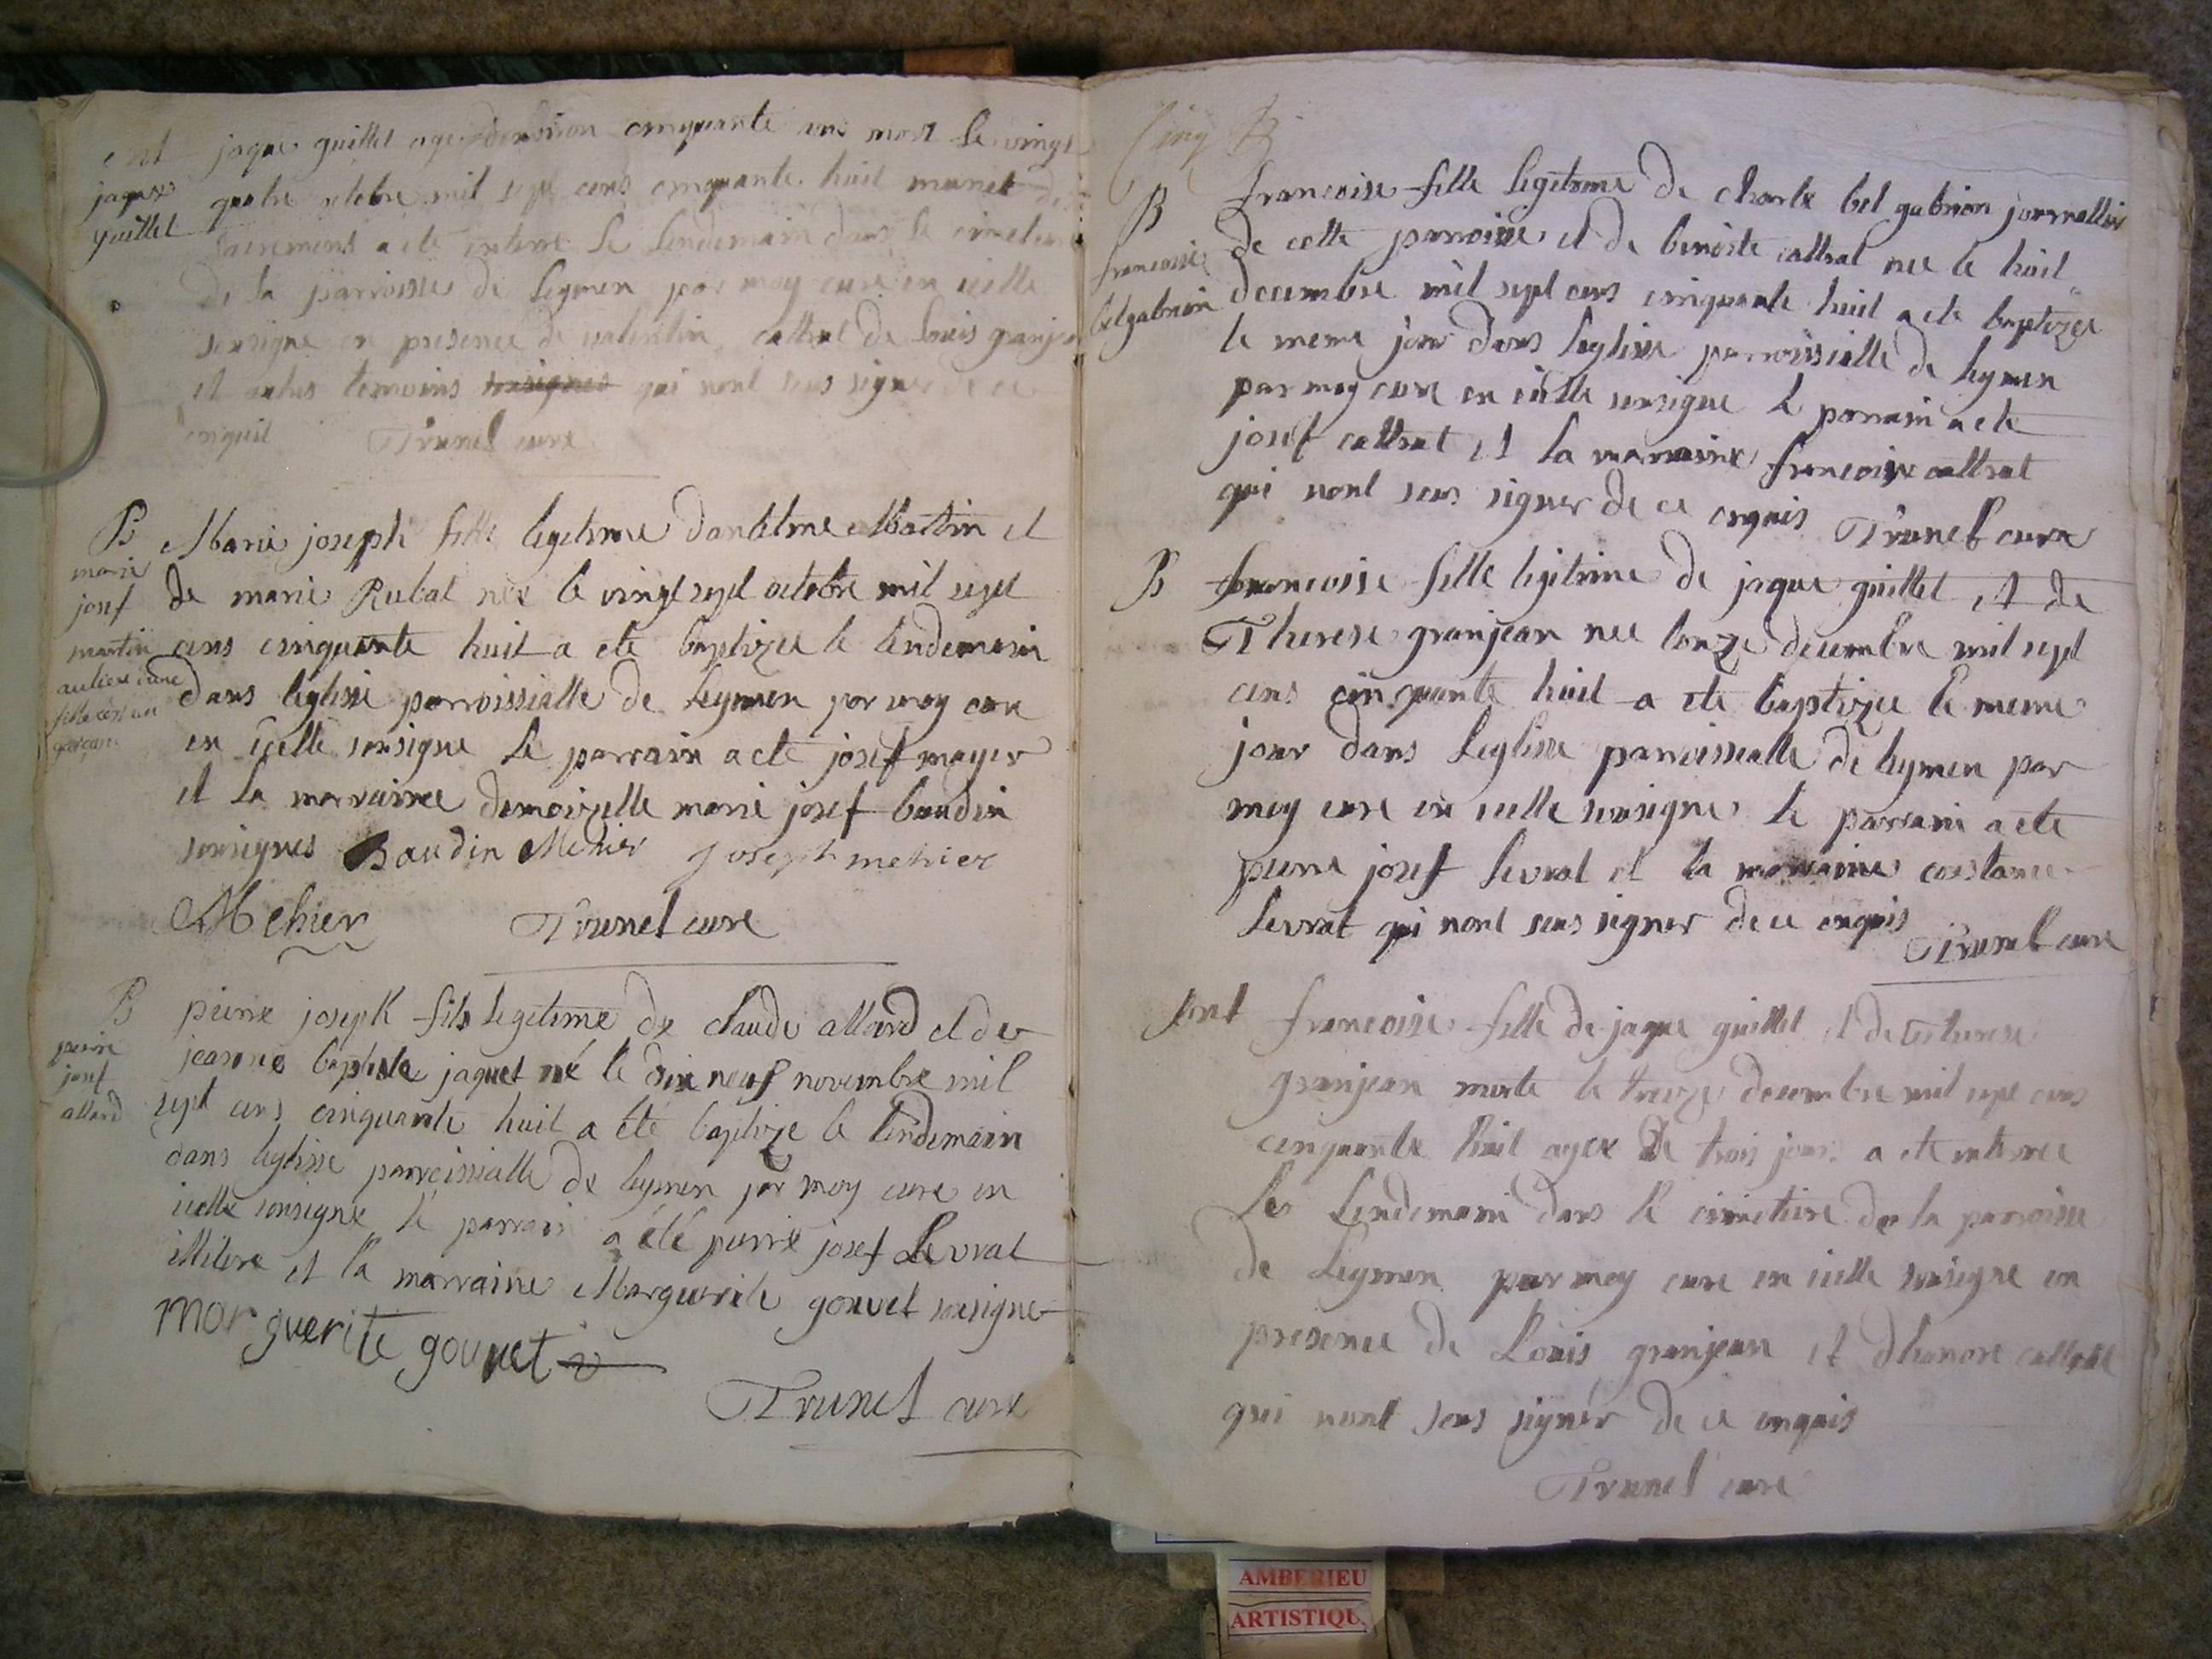 ent
jaques
guillet
jaque guillet age denviron cinquante ans mort le vingt
quatre octobre mil sept cens cinquante huit munit de
sacrements a ete enterre le lendemain dans le cimetiere
de la parroisse de leymen par moy cure en icelle
sousigne en presence de valentin cattrat de louis granjea
et autres temoins sousignes qui nont seus signer de ce
enquit Trunel cure
B
marie
josef
martin
au lieu dune
fille cest un
garçon
Marie joseph fille legitime dantelme Martin et
de marie Rubat nee le vingt sept octobre mil sept
cens cinquante huit a ete baptizee le lendemain
dans leglise parroissialle de leymen par moy cure
en icelle sousigne le parrain a ete josef mayer
et la marraine demoizelle marie josef baudin
sousignes Baudin Mehier Joseph mehier
Mehier Trunel cure
B
pierre
josef
allard
pierre joseph fils legitime de claude allard et de
jeanne baptiste jaquet né le dix neuf novembre mil
sept cens cinquante huit a été baptize le lendemain
dans leglise parroissialle de leymen par moy cure en
icelle sousigne le parrain a été pierre josef Levrat
illitere et la marraine Marguerite gouvet sousigne
marguerite gouvet
Trunel cure
Cinq B
B
francoise
belgabrion
francoise fille legitime de charle bel gabrion journallier
de cette parroisse et de benoite cattrat nee le huit
decembre mil sept cens cinquante huit a ete baptizee
le meme jour dans leglise parroissialle de leymen
par moy cure en icelle sousigne le parrain a ete
josef cattrat et la marraine francoise cattrat
qui nont seus signer de ce enquis Trunel cure
B francoise fille legitime de jaque guillet et de
Therese granjean nee lonze decembre mil sept
cens cinquante huit a ete baptizee le meme
jour dans leglise parroissealle de leymen par
moy cure en icelle sousigne le parrain a ete
pierre josef levrat et la marraine constance
levrat qui nont seus signer de ce enquis
Trunel cure
ent francoise fille de jaque guillet et de therese
granjean morte le treize decembre mil sept cens
cinquante huit agee de trois jours a ete enterree
le lendemain dans le cimetiere de la parroisse
de Leymen par moy cure en icelle sousigne en
presence de Louis granjean et dhonore cattrat
qui nont seus signer de ce enquis
Trunel cure
AMBERIEU
ARTISTIQU